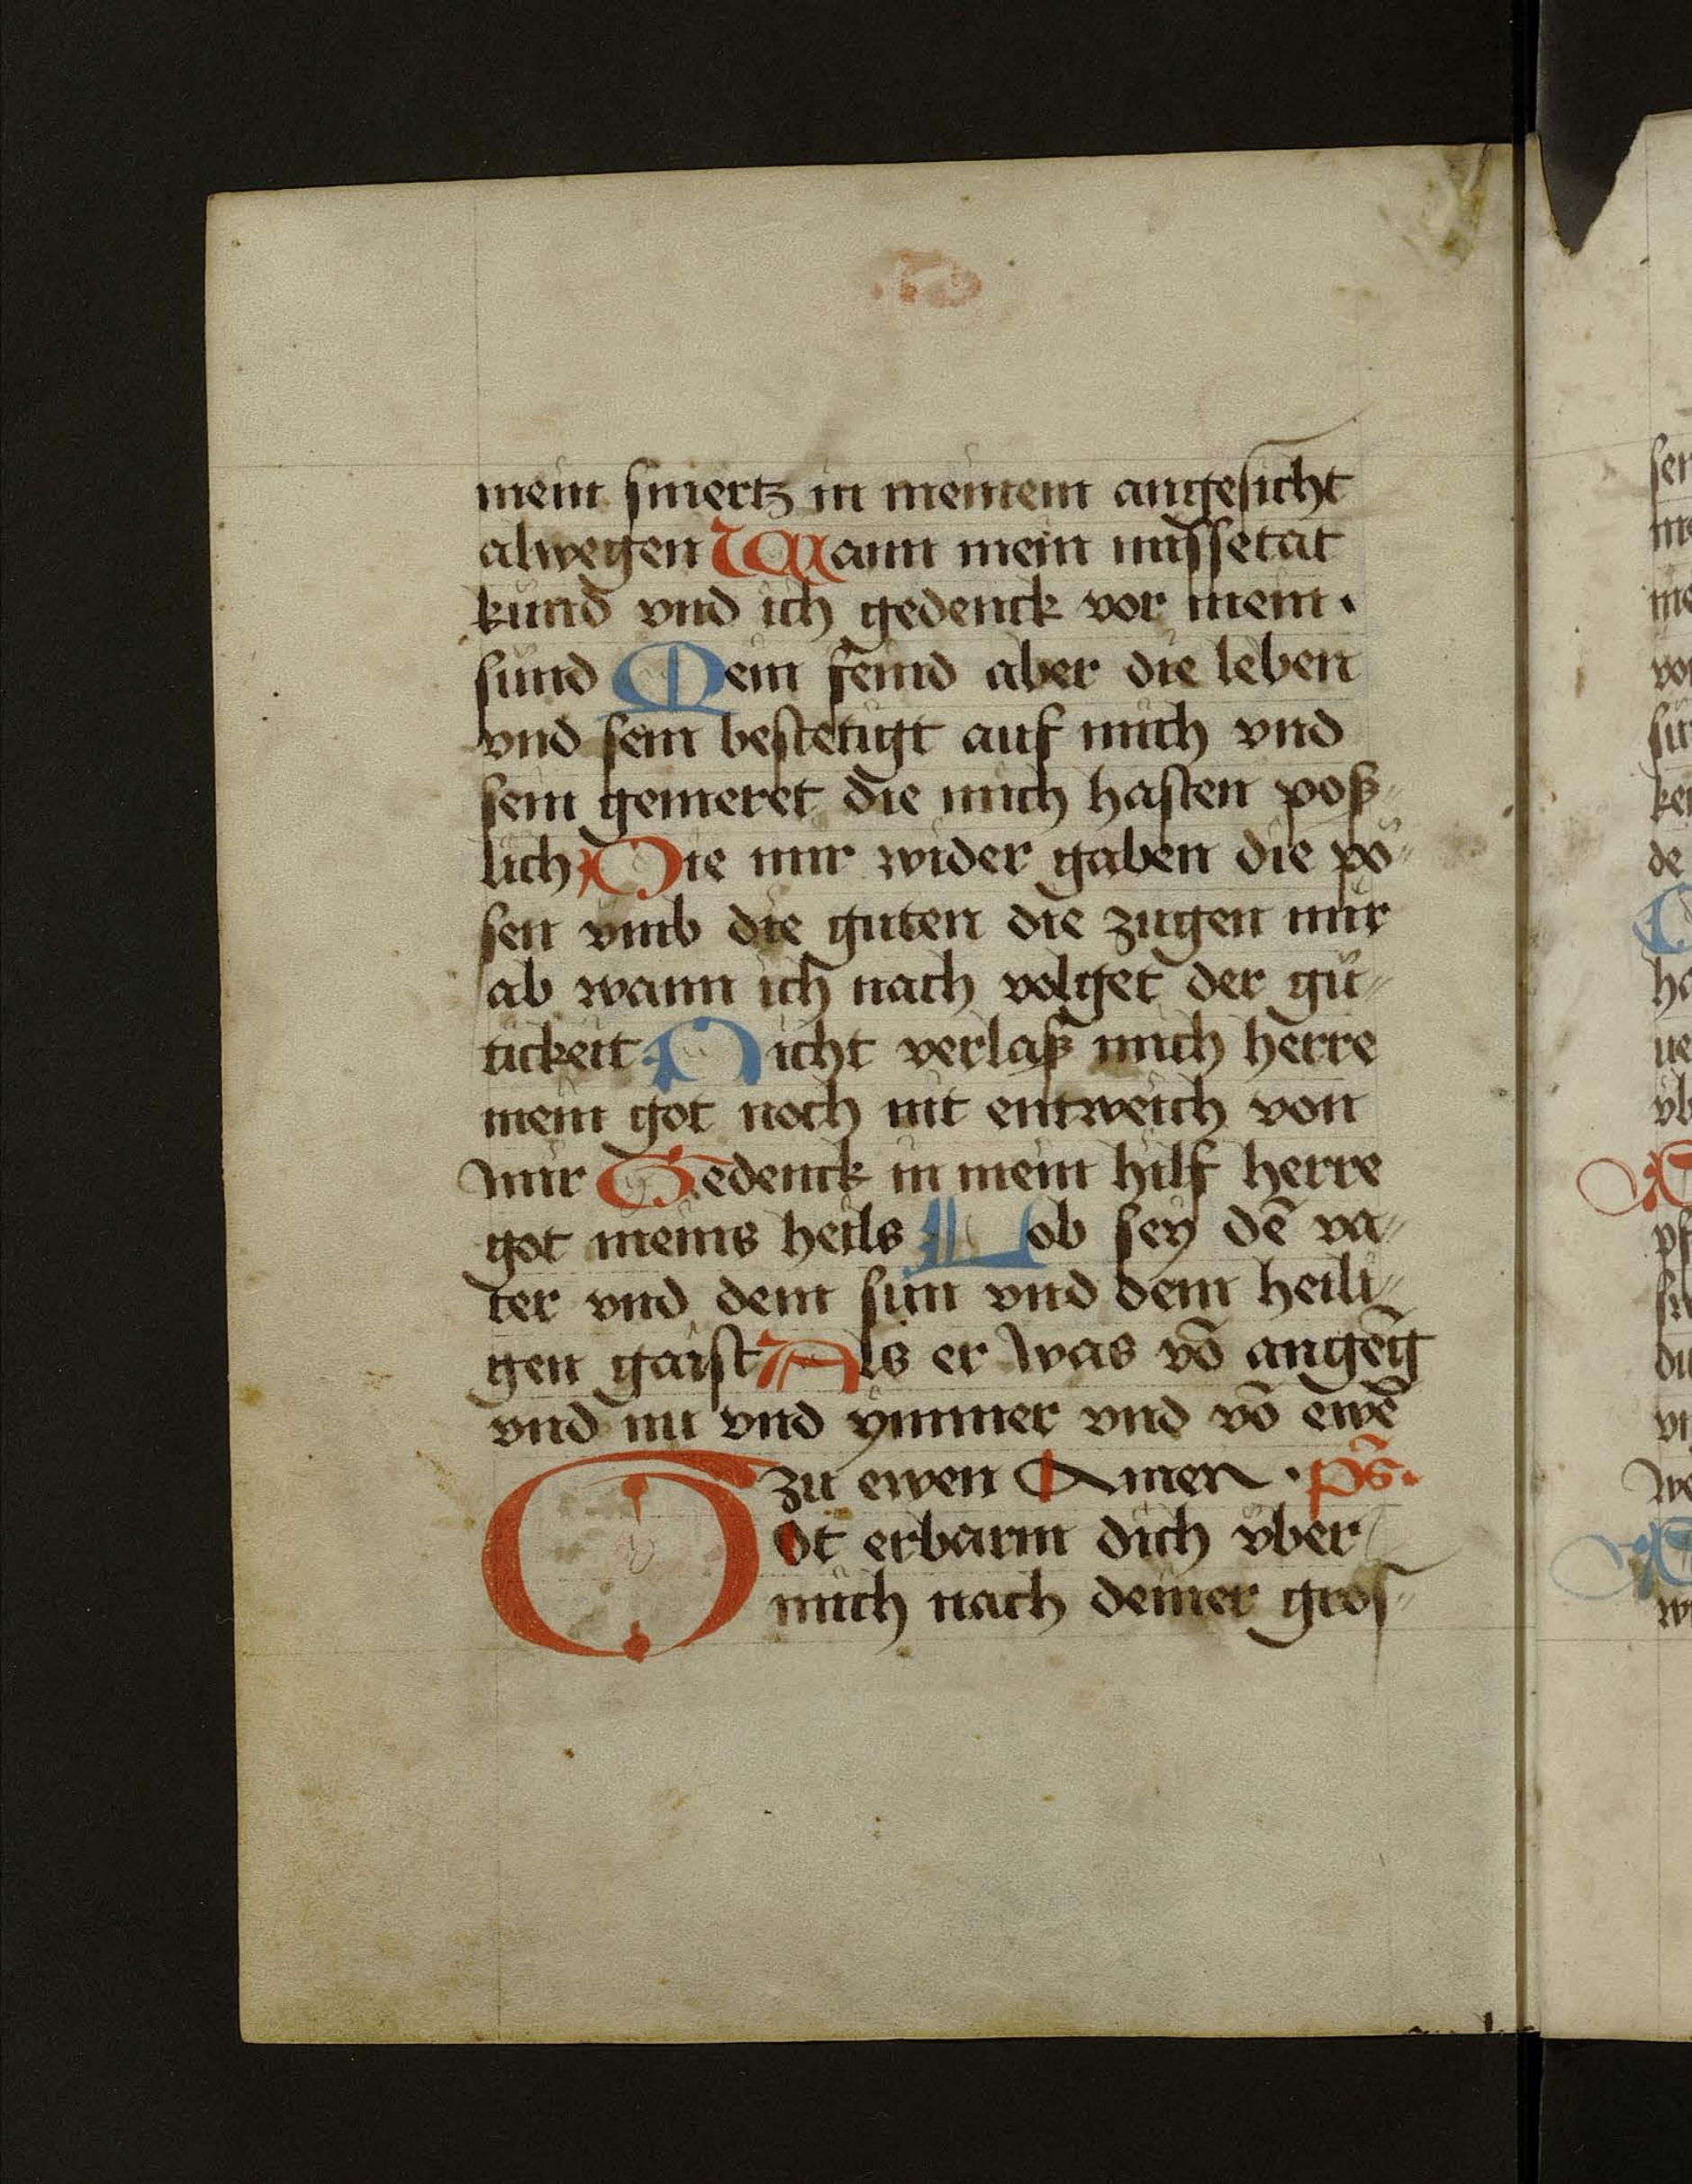 mein smertz in meinem angesicht
alwegen Wann mein missetat
kund vnd ich gedenck vor mein
sünd Mein feind aber die leben
vnd sein bestetigt auf mich vnd
sein gemeret die mich hasten poß=
lich Die mir wider gaben die pö=
sen vmb die guten die zugen mir
ab wann ich nach volget der gü=
tickeit Nicht verlaß mich herre
mein got noch nit entweich von
mir Gedenck in mein hilf herre
got meins heils Lob sey dē va=
ter vnd dem sun vnd dem heili=
gen gaist Als er was vō angēg
vnd nu vnd ymmer vnd vō ewē
zu ewen Amen · ps̄ ·
Got erbarm dich vber
mich nach deiner gros=